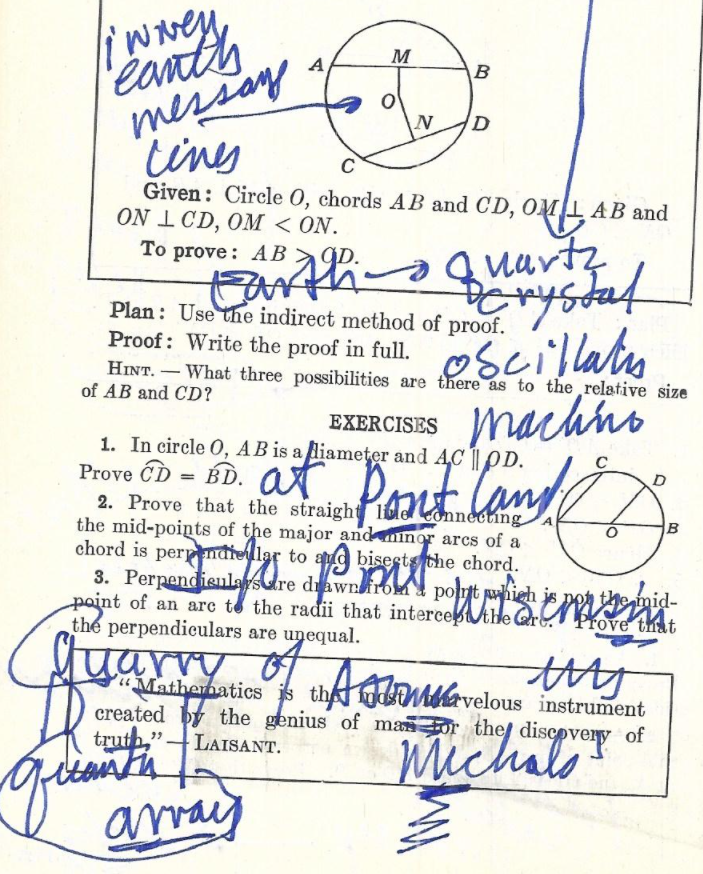 inner
earth
message
lines
A M B
O
N D
C
Given: Circle O, chords AB and CD, OM ⊥ AB and
ON ⊥ CD, OM < ON.
To prove: AB > CD.
Earth → quartz
crystal
Plan: Use the indirect method of proof.
Proof: Write the proof in full.
oscillatis
HINT. — What three possibilities are there as to the relative size
of AB and CD?
EXERCISES
machino
1. In circle O, AB is a diameter and AC ∥ OD.
Prove C͡D = B͡D.
at Pontland
C
D
A O B
2. Prove that the straight line connecting
the mid-points of the major and minor arcs of a
chord is perpendicular to and bisects the chord.
Pont
Wisconsin
3. Perpendiculars are drawn from a point which is not the mid-
point of an arc to the radii that intercept the arc. Prove that
the perpendiculars are unequal.
Quarry of
"Mathematics is the most marvelous instrument
created by the genius of man for the discovery of
truth." — LAISANT.
Michals
array